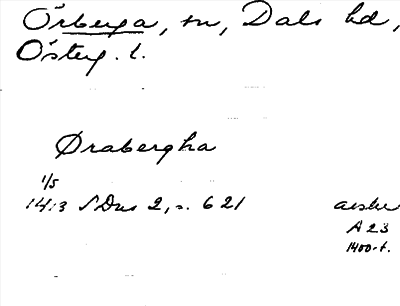 Örberga, sn, Dals hd,
Österg. l.
Ørabergha
1/5
1413 SDns 2, s. 621 avskr
A 23
1400-t.